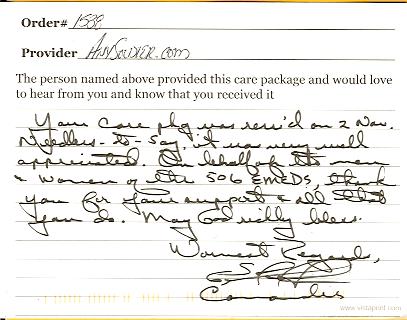 Order# 1538
Provider AnySoldier.com
The person named above provided this care package and would love
to hear from you and know that you received it
Your Care pkg was recv'd on 2 Nov.
Needless-to-Say, it was very well
appreciated. On behalf of the men
& women of the 506 EMEDS, thank
you for your support & all that
you do. May God richly bless.
Warmest Regards,
Commander
www.vistaprint.com